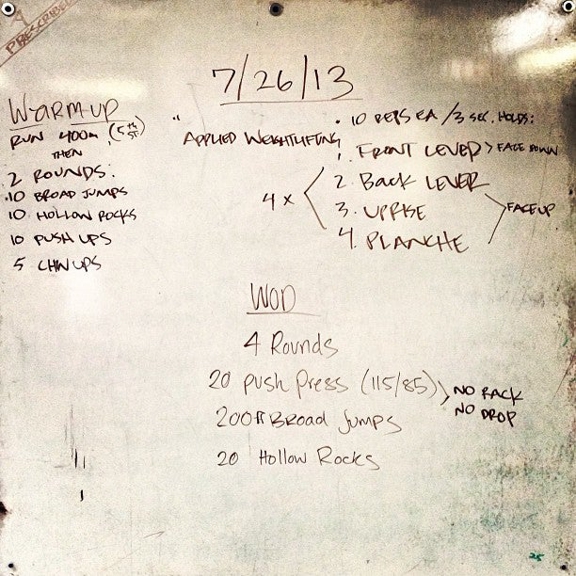 PRESCRIBED
7/26/13
WARM-UP
RUN 400m (5th ST)
THEN
2 ROUNDS:
10 BROAD JUMPS
10 HOLLOW ROCKS
10 PUSH UPS
5 CHIN UPS
"APPLIED WEIGHTLIFTING"
• 10 REPS EA / 3 SEC. HOLDS:
4 x
1. FRONT LEVER > FACE DOWN
2. BACK LEVER
3. UPRISE
4. PLANCHE
FACE UP
WOD
4 Rounds
20 Push Press (115/85)
200ft Broad Jumps
NO RACK
NO DROP
20 Hollow Rocks
25